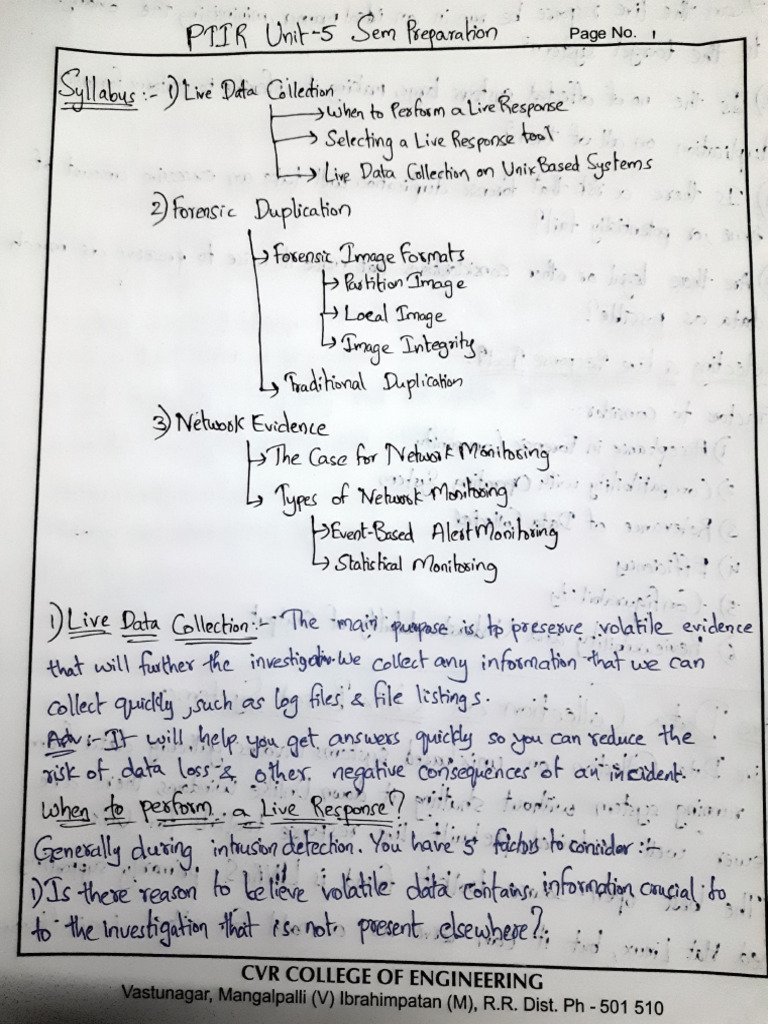 PTIR Unit-5 Sem Preparation Page No. 1
Syllabus :- 1) Live Data Collection
→ When to Perform a Live Response
→ Selecting a Live Response tool
→ Live Data Collection on Unix Based Systems
2) Forensic Duplication
→ Forensic Image Formats
→ Partition Image
→ Local Image
→ Image Integrity
→ Traditional Duplication
3) Network Evidence
→ The Case for Network Monitoring
→ Types of Network Monitoring
→ Event-Based Alert Monitoring
→ Statistical Monitoring
1) Live Data Collection :- The main purpose is to preserve volatile evidence
that will further the investigation. We collect any information that we can
collect quickly, such as log files & file listings.
Adv :- It will help you get answers quickly so you can reduce the
risk of data loss & other negative consequences of an incident.
When to perform a Live Response?
Generally during intrusion detection. You have 5 factors to consider :-
1) Is there reason to believe volatile data contains information crucial to
to the investigation that is not present elsewhere?
CVR COLLEGE OF ENGINEERING
Vastunagar, Mangalpalli (V) Ibrahimpatan (M), R.R. Dist. Ph - 501 510